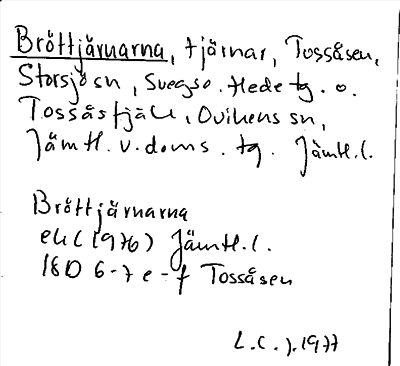 Bröttjärnarna, tjärnar, Tossåsen,
Storsjö sn, Svegs o. Hede tg. o.
Tossåsfjäll, Ovikens sn,
Jämtl. v. doms. tg. Jämtl. l.
Bröttjärnarna
ek (1976) Jämtl. l.
18D 6-7 e-f Tossåsen
L.C.J. 1977